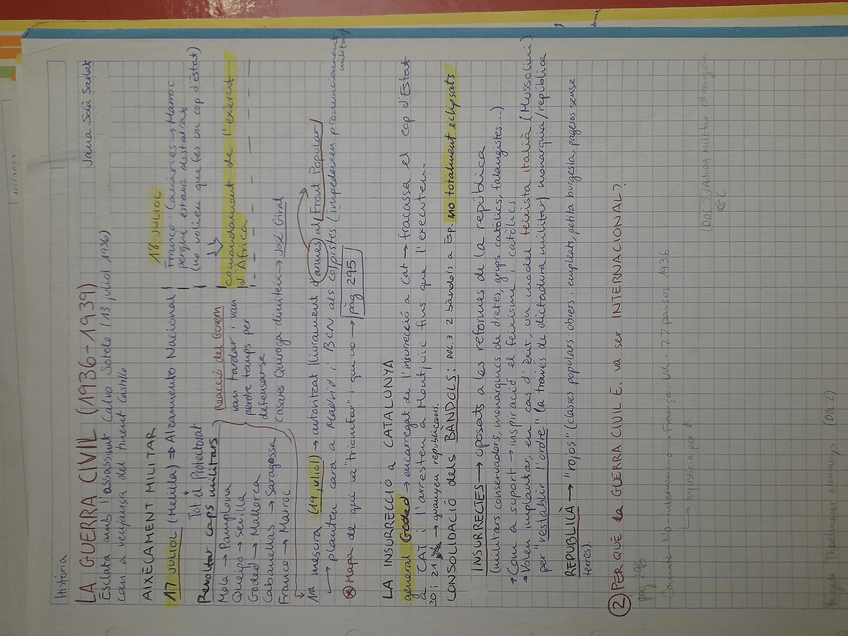 Història
LA GUERRA CIVIL (1936-1939)
Jana Solà
Esclata amb l'assassinat Calvo Sotelo (13 juliol 1936)
com a venjança del tinent Castillo
AIXECAMENT MILITAR
18 JULIOL
17 JULIOL (Melilla) → Alzamiento Nacional
Franco (Canàries → Marroc
perquè estava destinat allà
(no volien que fes un cop d'Estat)
Tot el Protectorat
Revoltar caps militars
comandament de l'exèrcit
d'Àfrica
Mola → Pamplona
Queipo → Sevilla
Goded → Mallorca
Cabanellas → Saragossa
Franco → Marroc
Reacció del Govern
van tardar i van
perdre temps per
defensarse
Casares Quiroga dimiteix → José Giral
1a mesura (19 juliol) → autoritzat lliurament d'armes al Front Popular
→ planten cara a Madrid i BCN als colpistes (impedeixen pronunciament
militar)
Mapa de qui va "triomfar" i qui no → pàg 295
LA INSURRECCIÓ a CATALUNYA
general Goded → encarregat de l'insurrecció a Cat → fracassa el cop d'Estat
a CAT i l'arresten a Montjuïc fins que l'executen.
→ guanyen republicans.
CONSOLIDACIÓ dels BÀNDOLS: DOC.3 2 bàndols a Esp. no totalment eclipsats
INSURRECTES → oposats a les reformes de la república
(militars conservadors, monàrquics de dretes, grups catòlics, falangistes...)
Com a suport → inspiració el feixisme i catòlics
Volen implantar, en cas d'Est. un model feixista italià (Mussolini)
per "restablir l'ordre" (a través de dictadura militar) monarquia/república
REPUBLICÀ → "rojos" (classes populars obrers: empleats, petita burgesia, pagesos sense
terres).
② PER QUÈ la GUERRA CIVIL E. va ser INTERNACIONAL?
pàg 296
Comitè No-intervenció → França, UK + 27 països 1936
→ injustícia per R
(DOC 3) Ajuda militar estrangera
GC
(DOC 2)